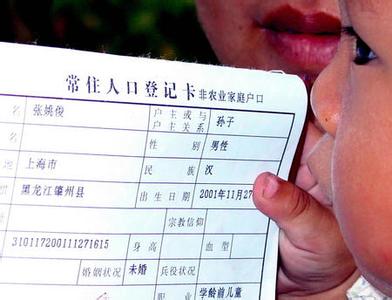 常住人口登记卡 非农业家庭户口
名 张姚俊 户主或与户主关系 孙子
性别 男性
地 上海市 民族 汉
黑龙江肇州县 出生日期 2001年11月27
宗教信仰
310117200111271615 身高 血型
婚姻状况 未婚 兵役状况
职业 学龄前儿童